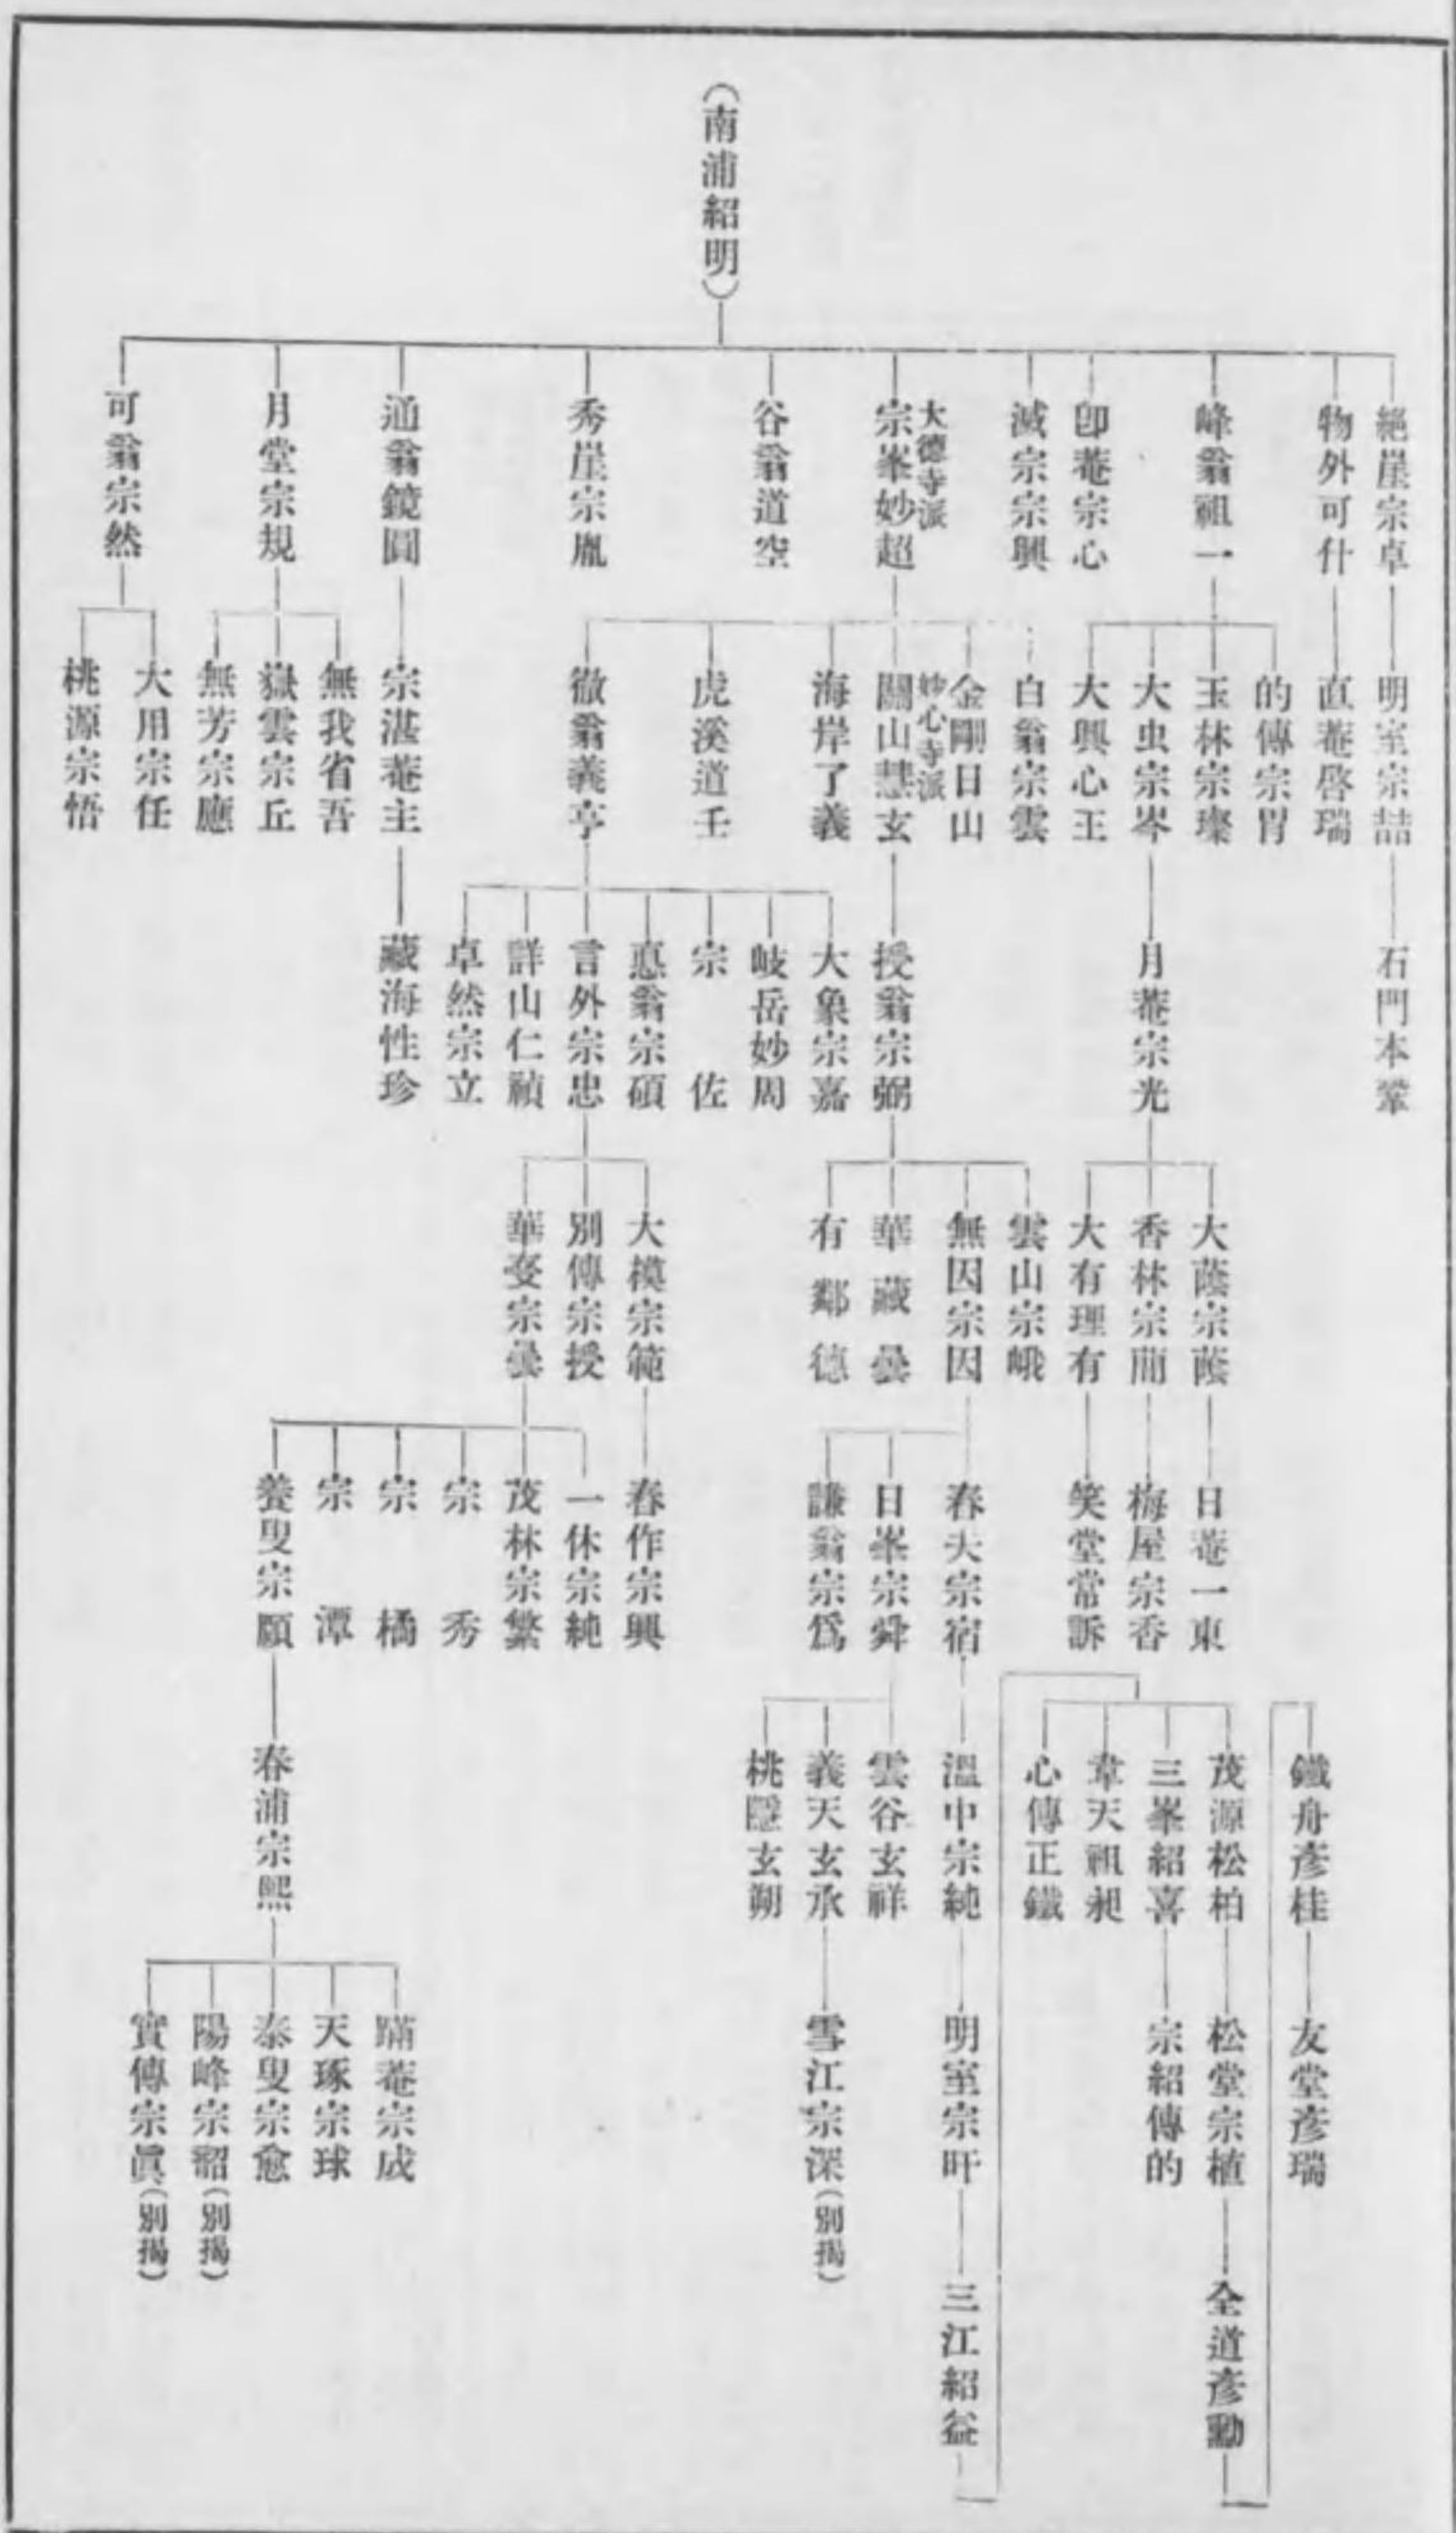 (南浦紹明)
絕崖宗卓
物外可什
峰翁祖一
卽菴宗心
滅宗宗興
大德寺派
宗峯妙超
谷翁道空
秀崖宗胤
通翁鏡圓
月堂宗規
可翁宗然
明室宗喆
直菴啓瑞
的傳宗胃
玉林宗璨
大虫宗岑
大興心王
白翁宗雲
金剛日山
妙心寺派
關山慧玄
海岸了義
虎溪道壬
徹翁義亨
宗湛菴主
無我省吾
嶽雲宗丘
無芳宗應
大用宗任
桃源宗悟
石門本鞏
月菴宗光
授翁宗弼
大象宗嘉
岐岳妙周
宗佐
惠翁宗碩
言外宗忠
詳山仁禎
卓然宗立
藏海性珍
大蔭宗蔭
香林宗簡
大有理有
雲山宗峨
無因宗因
華藏曇
有鄰德
大模宗範
別傳宗授
華叟宗曇
日菴一東
梅屋宗香
笑堂常訴
春夫宗宿
日峯宗舜
謙翁宗爲
春作宗興
一休宗純
茂林宗繁
宗秀
宗橘
宗潭
養叟宗頤
鐵舟彥桂
茂源松柏
三峯紹喜
韋天祖昶
心傳正鐵
溫中宗純
雲谷玄祥
義天玄承
桃隱玄朔
春浦宗熙
友堂彥瑞
松堂宗植
宗紹傳的
明室宗旰
雪江宗深(別揭)
瞞菴宗成
天琢宗球
泰叟宗愈
陽峰宗韶(別揭)
實傳宗眞(別揭)
全道彥勳
三江紹益